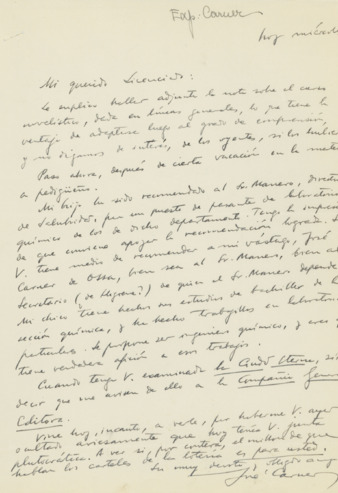 Exp: Carner
hoy miércol
Mi querido Licenciado:
Le suplico hallar adjunta la nota sobre el curso
novelístico, dada en líneas generales, lo que tiene la
ventaja de adaptarse luego al grado de comprensión,
y no digamos de interés, de los oyentes, si los hubiere
Paso ahora, después de cierta vacación en la mate
a pedigüeño.
Mi hijo ha sido recomendado al Sr. Manero, director
de Salubridad, por un puesto de ayudante de laboratorio
químico de los de dicho departamento. Tengo la impres
de que conviene apoyar la recomendación lograda. Si
V. tiene medios de recomendar a mi vástago, José
Carner de Ossa, bien sea al Sr. Manero, bien al
Secretario (de Higiene?) de quien el Sr. Manero depende
Mi chico tiene hechos sus estudios de bachiller de la
sección química, y ha hecho trabajillos en laboratorio
particular. Se propone ser ingeniero químico, y creo q
tiene verdadera afición a esos trabajos.
Cuando tenga V. examinada la Ciudad Eterna,
decir que me avisen de ello a la Compañía General
Editora.
Vine hoy, incauto, a verle, por haberme V. ayer
ocultado aviesamente que hoy tenía V. junta
plutocrática. A ver si, por contera, el millón de que
hablan los carteles de la lotería es para usted.
Su muy devoto y
José Carner